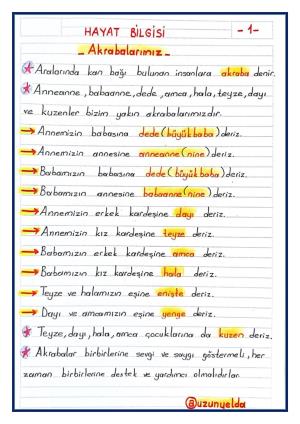 HAYAT BİLGİSİ
-1-
Akrabalarımız
Aralarında kan bağı bulunan insanlara akraba denir.
Anneanne, babaanne, dede, amca, hala, teyze, dayı
ve kuzenler bizim yakın akrabalarımızdır.
Annemizin babasına dede (büyükbaba) deriz.
Annemizin annesine anneanne (nine) deriz.
Babamızın babasına dede (büyükbaba) deriz.
Babamızın annesine babaanne (nine) deriz.
Annemizin erkek kardeşine dayı deriz.
Annemizin kız kardeşine teyze deriz.
Babamızın erkek kardeşine amca deriz.
Babamızın kız kardeşine hala deriz.
Teyze ve halamızın eşine enişte deriz.
Dayı ve amcamızın eşine yenge deriz.
Teyze, dayı, hala, amca çocuklarına da kuzen deriz.
Akrabalar birbirlerine sevgi ve saygı göstermeli, her
zaman birbirlerine destek ve yardımcı olmalıdırlar.
@uzunyelda